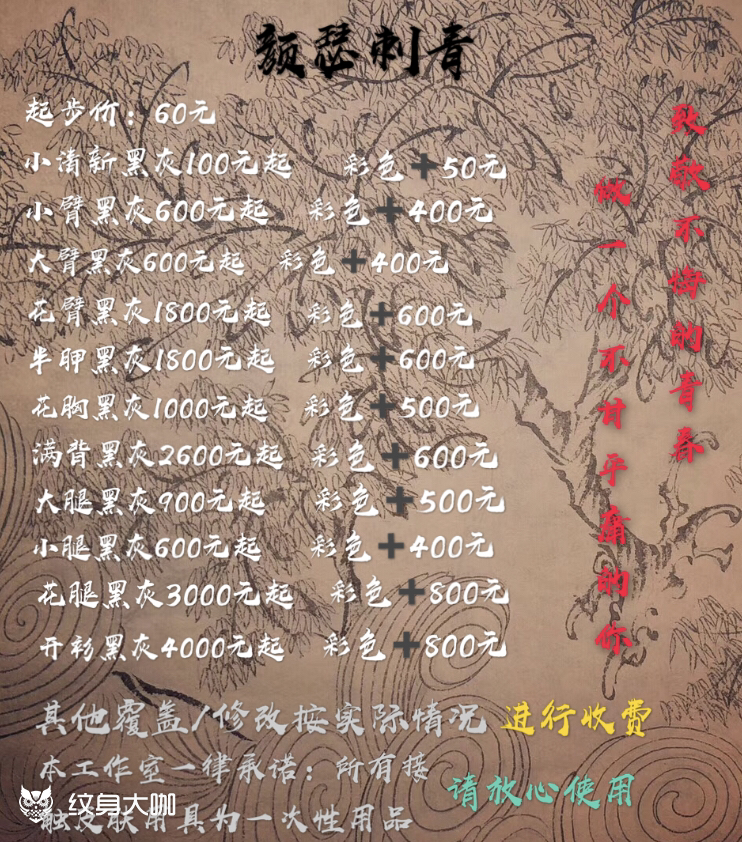 颜瑟刺青
起步价：60元
小清新黑灰100元起 彩色➕50元
小臂黑灰600元起 彩色➕400元
大臂黑灰600元起 彩色➕400元
花臂黑灰1800元起 彩色➕600元
半胛黑灰1800元起 彩色➕600元
花胸黑灰1000元起 彩色➕500元
满背黑灰2600元起 彩色➕600元
大腿黑灰900元起 彩色➕500元
小腿黑灰600元起 彩色➕400元
花腿黑灰3000元起 彩色➕800元
开衫黑灰4000元起 彩色➕800元
致敬不悔的青春
做一个不甘平庸的你
其他覆盖/修改按实际情况 进行收费
本工作室一律承诺：所有接
触皮肤用具为一次性用品
请放心使用
纹身大咖